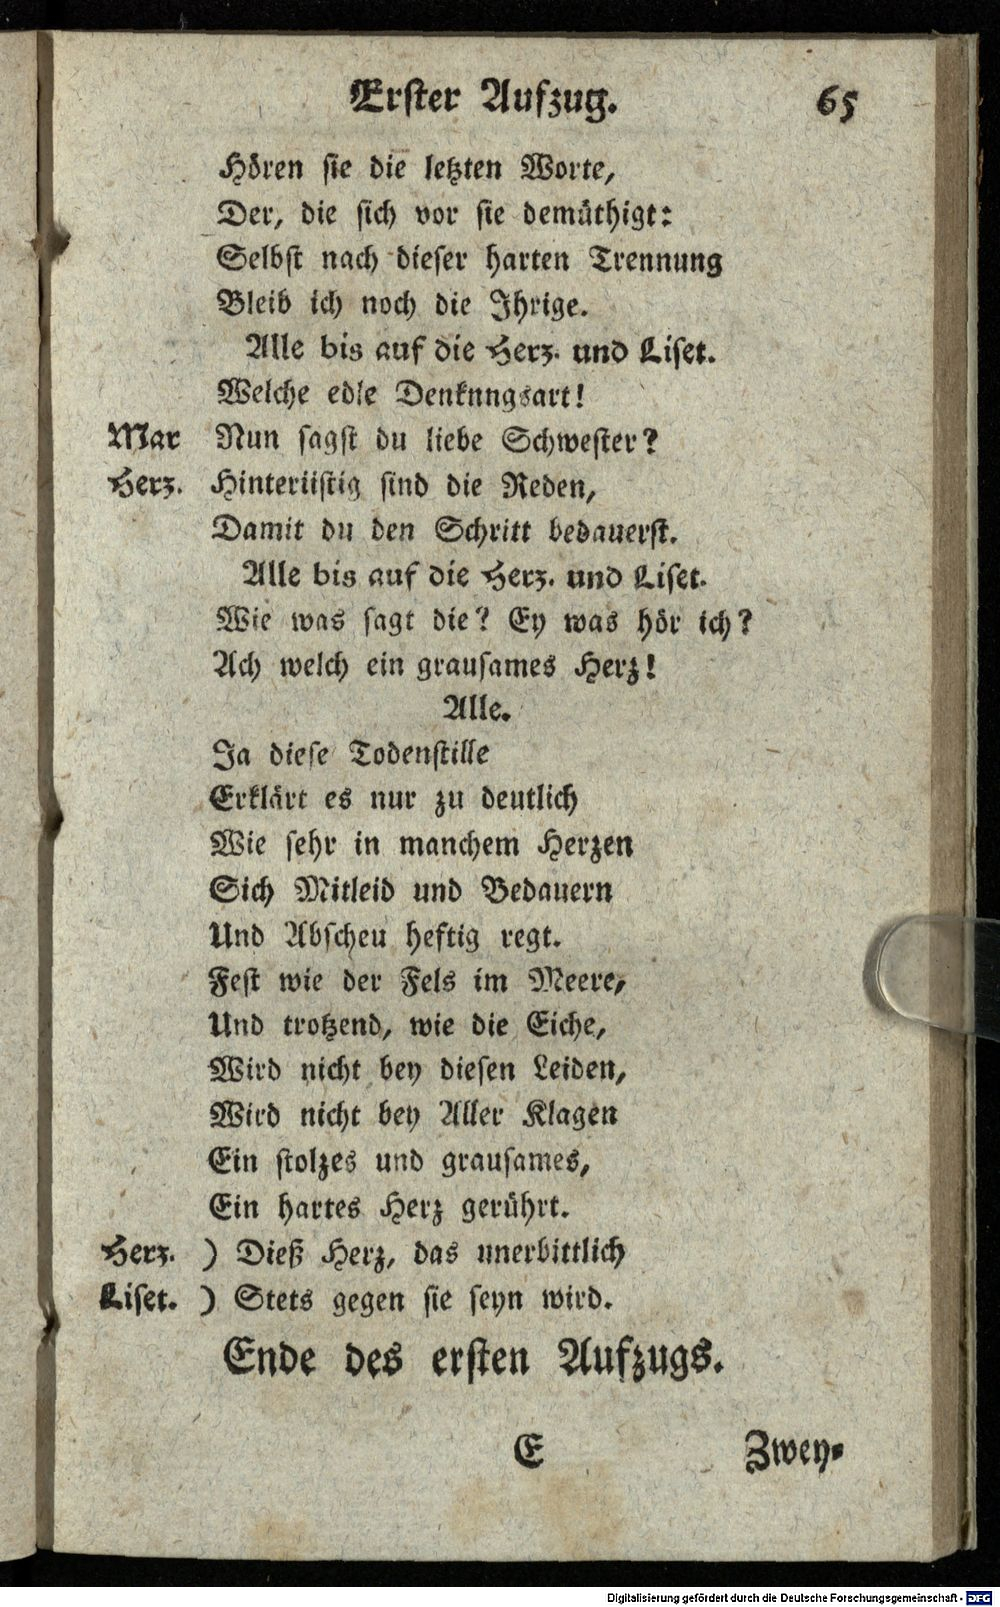 Erster Aufzug. 65
Hören sie die letzten Worte,
Der, die sich vor sie demüthigt:
Selbst nach dieser harten Trennung
Bleib ich noch die Ihrige.
Alle bis auf die Herz. und Liset.
Welche edle Denknngsart!
Mar Nun sagst du liebe Schwester?
Herz. Hinteriistig sind die Reden,
Damit du den Schritt bedauerst.
Alle bis auf die Herz. und Liset.
Wie was sagt die? Ey was hör ich?
Ach welch ein grausames Herz!
Alle.
Ja diese Todenstille
Erklärt es nur zu deutlich
Wie sehr in manchem Herzen
Sich Mitleid und Bedauern
Und Abscheu heftig regt.
Fest wie der Fels im Meere,
Und trotzend, wie die Eiche,
Wird nicht bey diesen Leiden,
Wird nicht bey Aller Klagen
Ein stolzes und grausames,
Ein hartes Herz gerührt.
Herz. ) Dieß Herz, das unerbittlich
Liset. ) Stets gegen sie seyn wird.
Ende des ersten Aufzugs.
E Zwey-
Digitalisierung gefördert durch die Deutsche Forschungsgemeinschaft - DFG